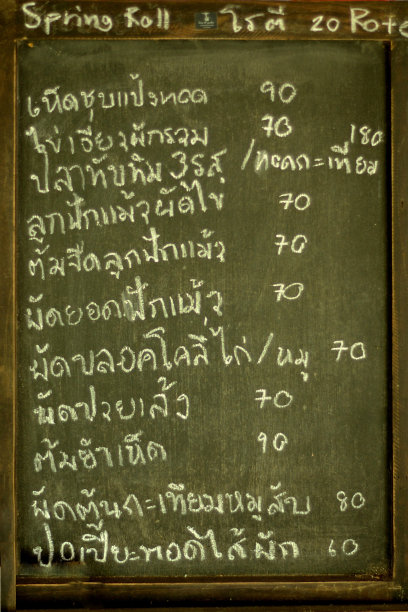 Spring Roll โรตี 20 Rote
เห็ดชุบแป้งทอด 90
ไข่เจียวผักรวม 70
ปลาทับทิม 3รส /ทอดกระเทียม 180
ลูกฟักแม้วผัดไข่ 70
ต้มจืดลูกฟักแม้ว 70
ผัดยอดฟักแม้ว 70
ผัดบลอคโคลี่ไก่/หมู 70
ผัดปวยเล้ง 70
ต้มยำเห็ด 90
ผัดต้นกระเทียมหมูสับ 80
ปอเปี๊ยะทอดไส้ผัก 60